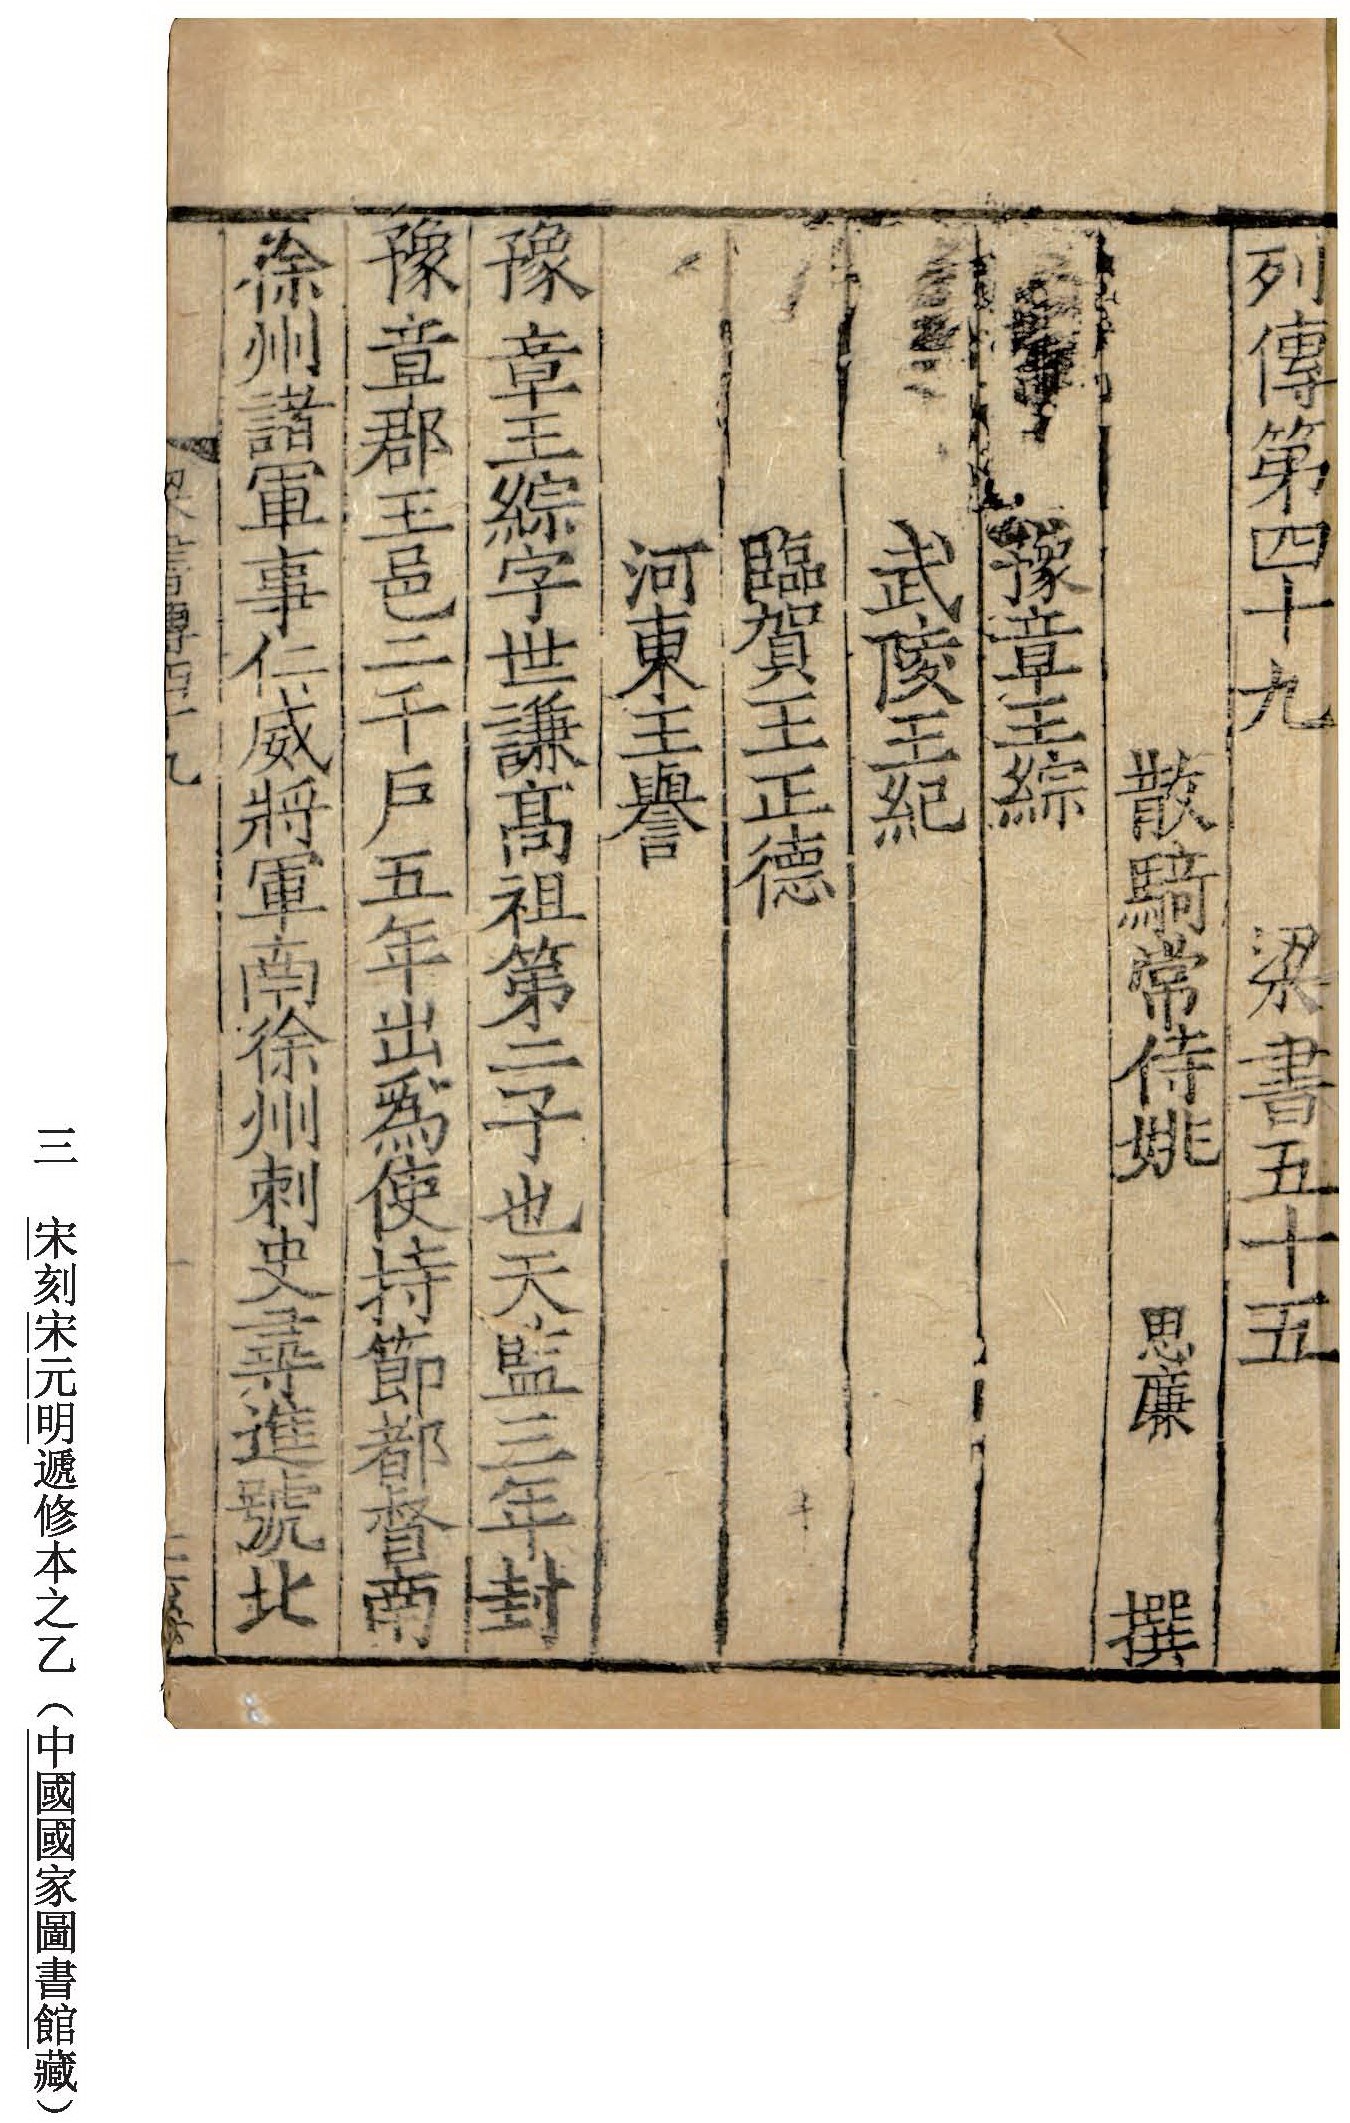 列傳第四十九　梁書五十五
散騎常侍姚　思廉　撰
豫章王綜
武陵王紀
臨賀王正德
河東王譽
豫章王綜字世謙高祖第二子也天監三年封
豫章郡王邑二千戶五年出爲使持節都督南
徐州諸軍事仁威將軍南徐州刺史尋進號北
梁書傳四十九
三　宋刻宋元明遞修本之乙（中國國家圖書館藏）